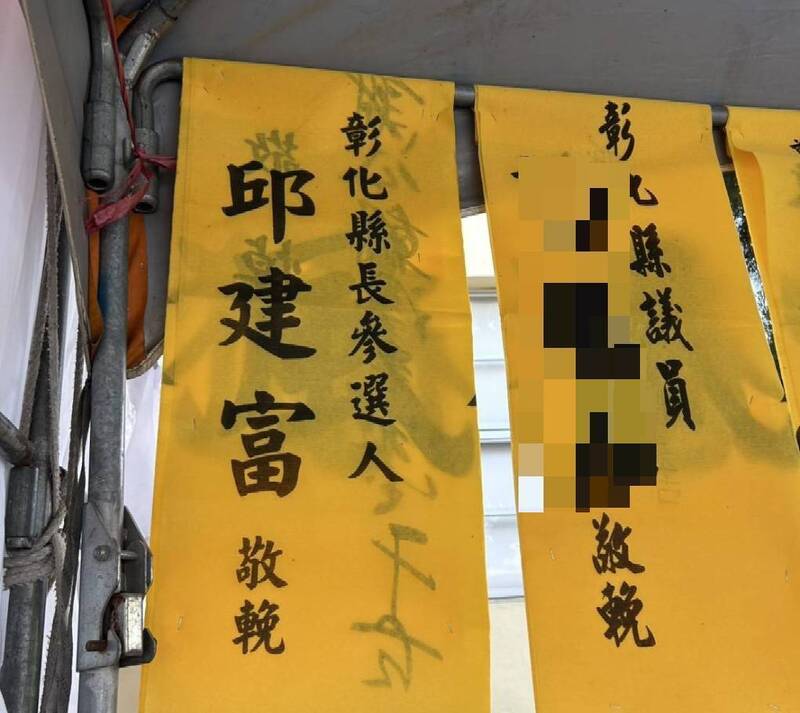 彰化縣議員
敬輓
彰化縣長參選人
邱建富
敬輓